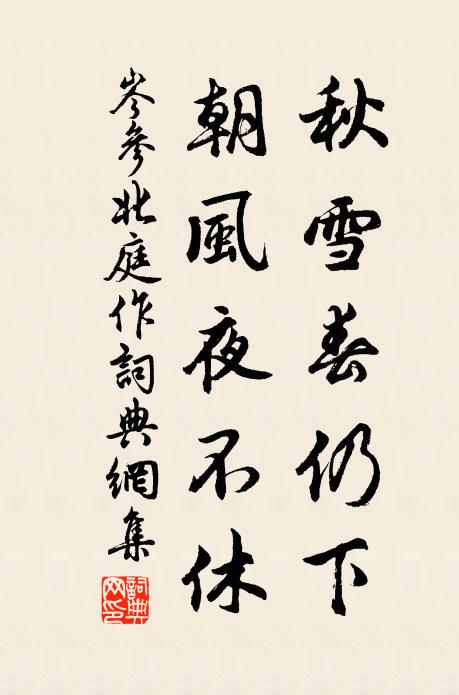 秋雪春仍下
朝風夜不休
岑參北庭作詞典網集
詞典网印